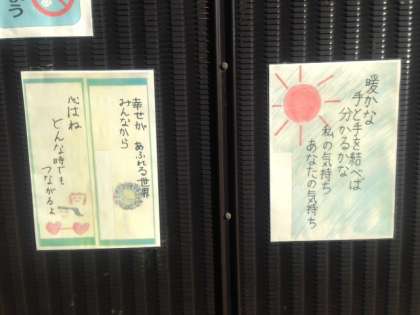 暖かな
手と手を結べば
分かるかな
私の気持ち
あなたの気持ち
幸せが あふれる世界
みんなから
心はね
どんな時でも
つながるよ